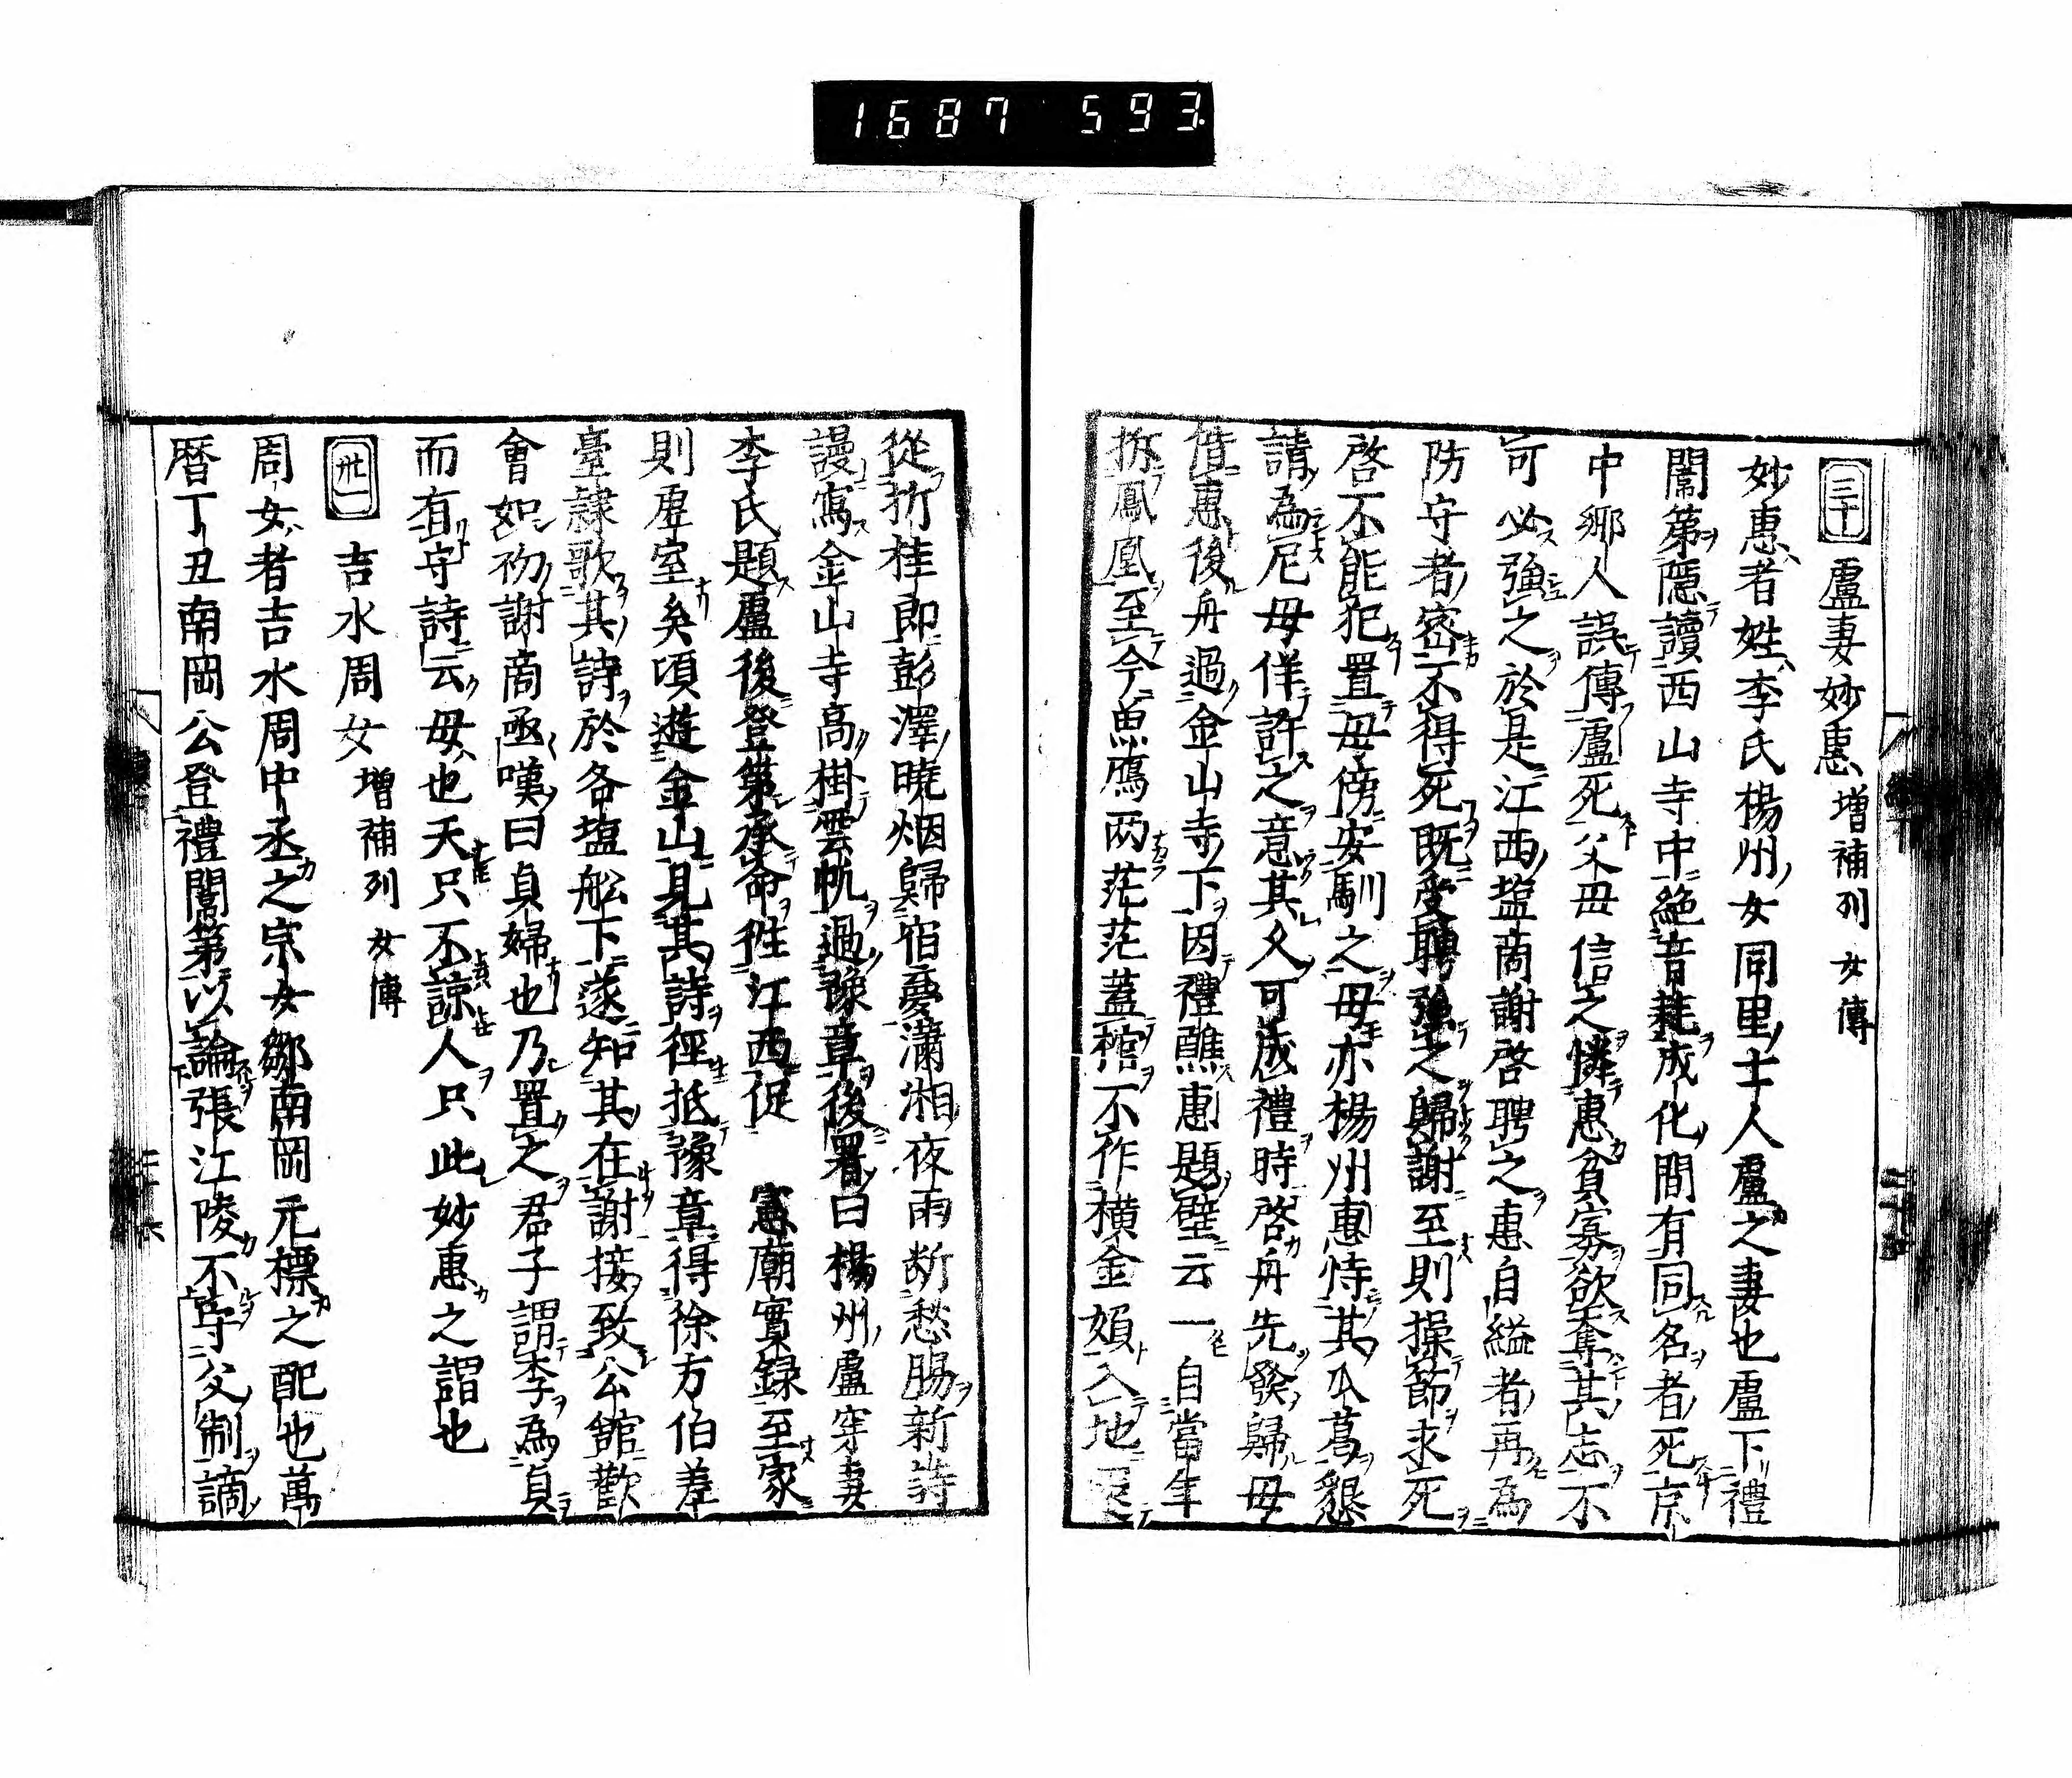 1687 593
三十 盧妻妙惠 增補列女傳
妙惠者姓李氏楊州女同里士人盧之妻也盧下禮
闈第隱讀西山寺中絶音耗成化間有同名者死京
中鄉人誤傳盧死父母信之憐惠貧寡欲奪其志不
可必強之於是江西塩商謝啓聘之惠自縊者再為
防守者密不得死既受聘強之歸謝至則操節求死
啓不能犯置母傍安馴之母亦楊州惠恃其瓜葛懇
請為尼母佯許之意其久可成禮時啓舟先發歸母
偕惠後舟過金山寺下因禮醮惠題壁云一自當年
拆鳳凰至今魚鴈两茫茫蓋棺不作横金婦入地還
從折桂郎彭澤曉烟歸宿夢瀟湘夜雨断愁腸新詩
謾寫金山寺高掛雲帆過豫章後署曰楊州盧穼妻
李氏題盧後登第承命徃江西促 憲廟實録至家
則虛室矣頃遊金山見其詩徑抵豫章得徐方伯差
臺隷歌其詩於各塩舩下遂知其在謝接致公館歡
會如初謝商亟嘆曰貞婦也乃置之君子謂李為貞
而有守詩云母也天只不諒人只此妙惠之謂也
卅一 吉水周女 增補列女傳
周女者吉水周中丞之宗女鄒南岡元標之配也萬
暦丁丑南岡公登禮闈第以論張江陵不守父制謫